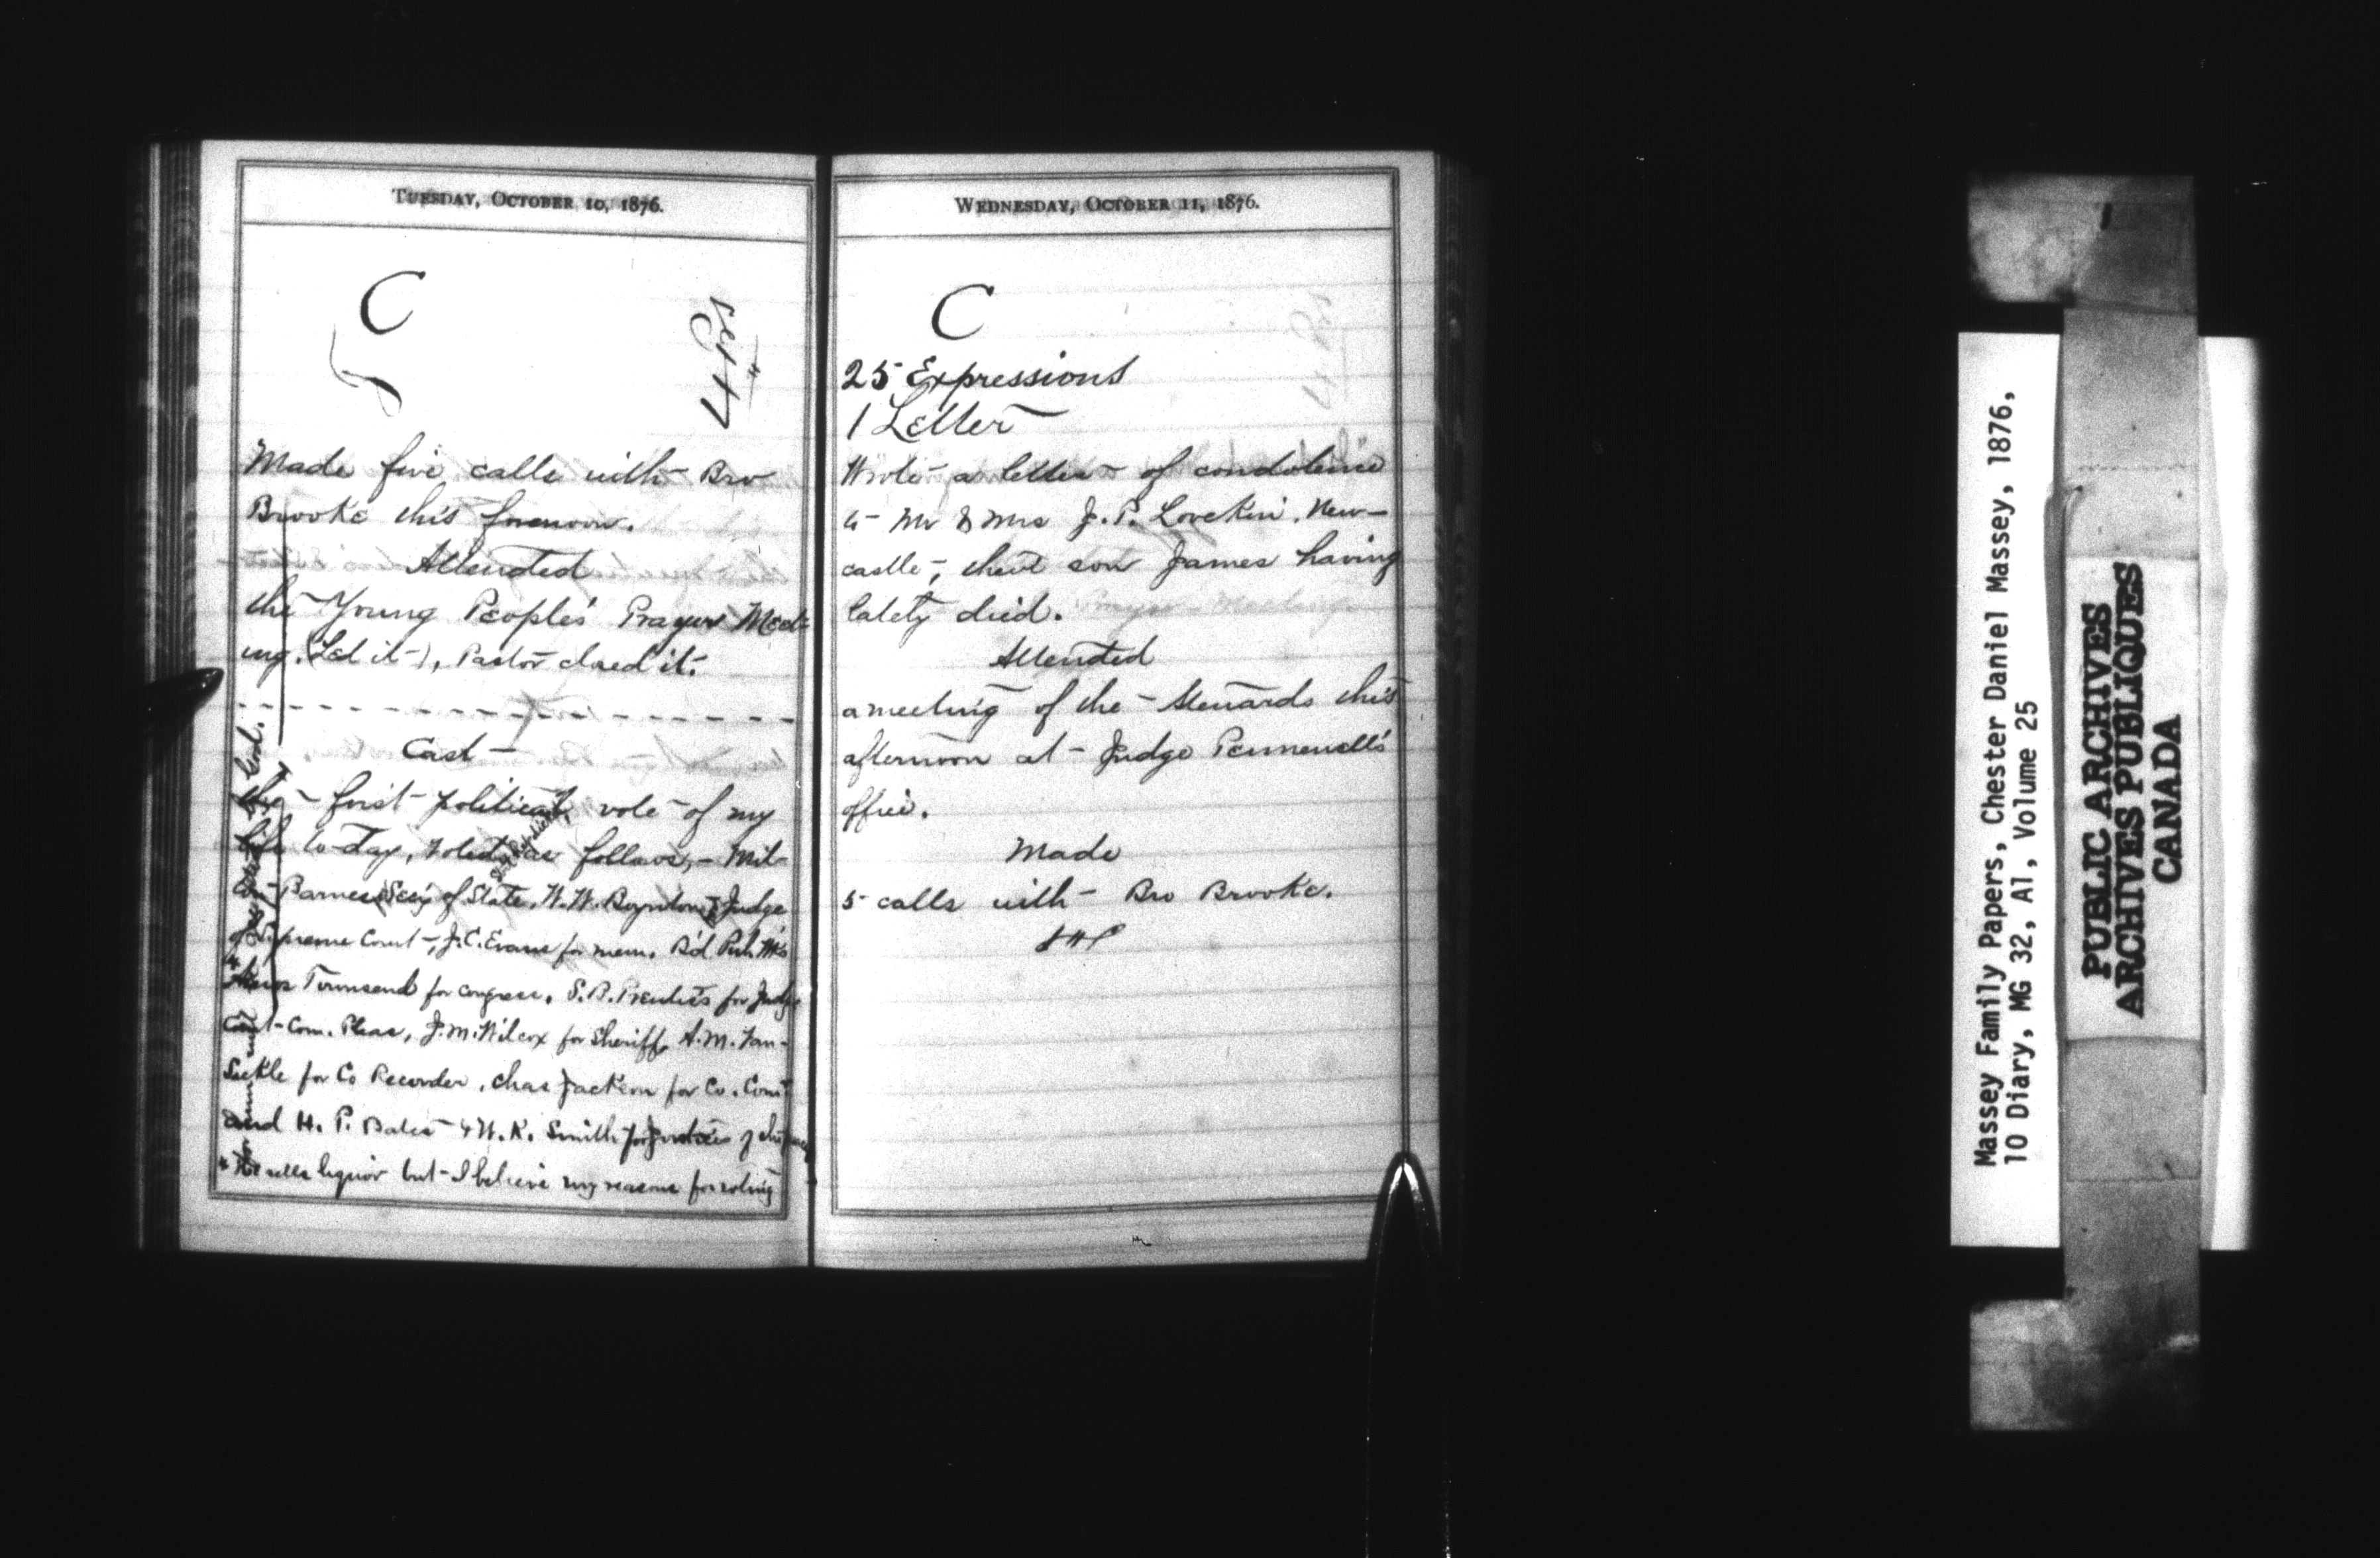 TUESDAY, OCTOBER 10, 1876.
C
Made five calls with Bro
Brooke this forenoon.
Attended
the Young People's Prayer Meet-
ing. (Led it), Pastor closed it.
Cast
the first political vote of my
life to-day, Voted as follows, - Mil-
ton Barnes Sec'y of State, W. W. Boynton Judge
of Supreme Court, J. C. Evans for mem. B'd Pub. W'ks
Amos Townsend for congress, S. B. Prentiss for Judge
Court Com. Pleas, J. M. Wilcox for Sheriff, A. M. Van-
Sickle for Co Recorder, Chas Jackson for Co. Com.
and H. P. Bates & W. K. Smith for Justices of the peace
* He sells liquor but I believe my reasons for voting
WEDNESDAY, OCTOBER 11, 1876.
C
25 Expressions
1 Letter
Wrote a letter of condolence
to Mr & Mrs J. P. Lovekin, New-
castle, their son James having
lately died.
Attended
a meeting of the Stewards this
afternoon at Judge Pennewell's
office.
Made
5 calls with Bro Brooke.
Massey Family Papers, Chester Daniel Massey, 1876,
10 Diary, MG 32, A1, Volume 25
PUBLIC ARCHIVES
ARCHIVES PUBLIQUES
CANADA